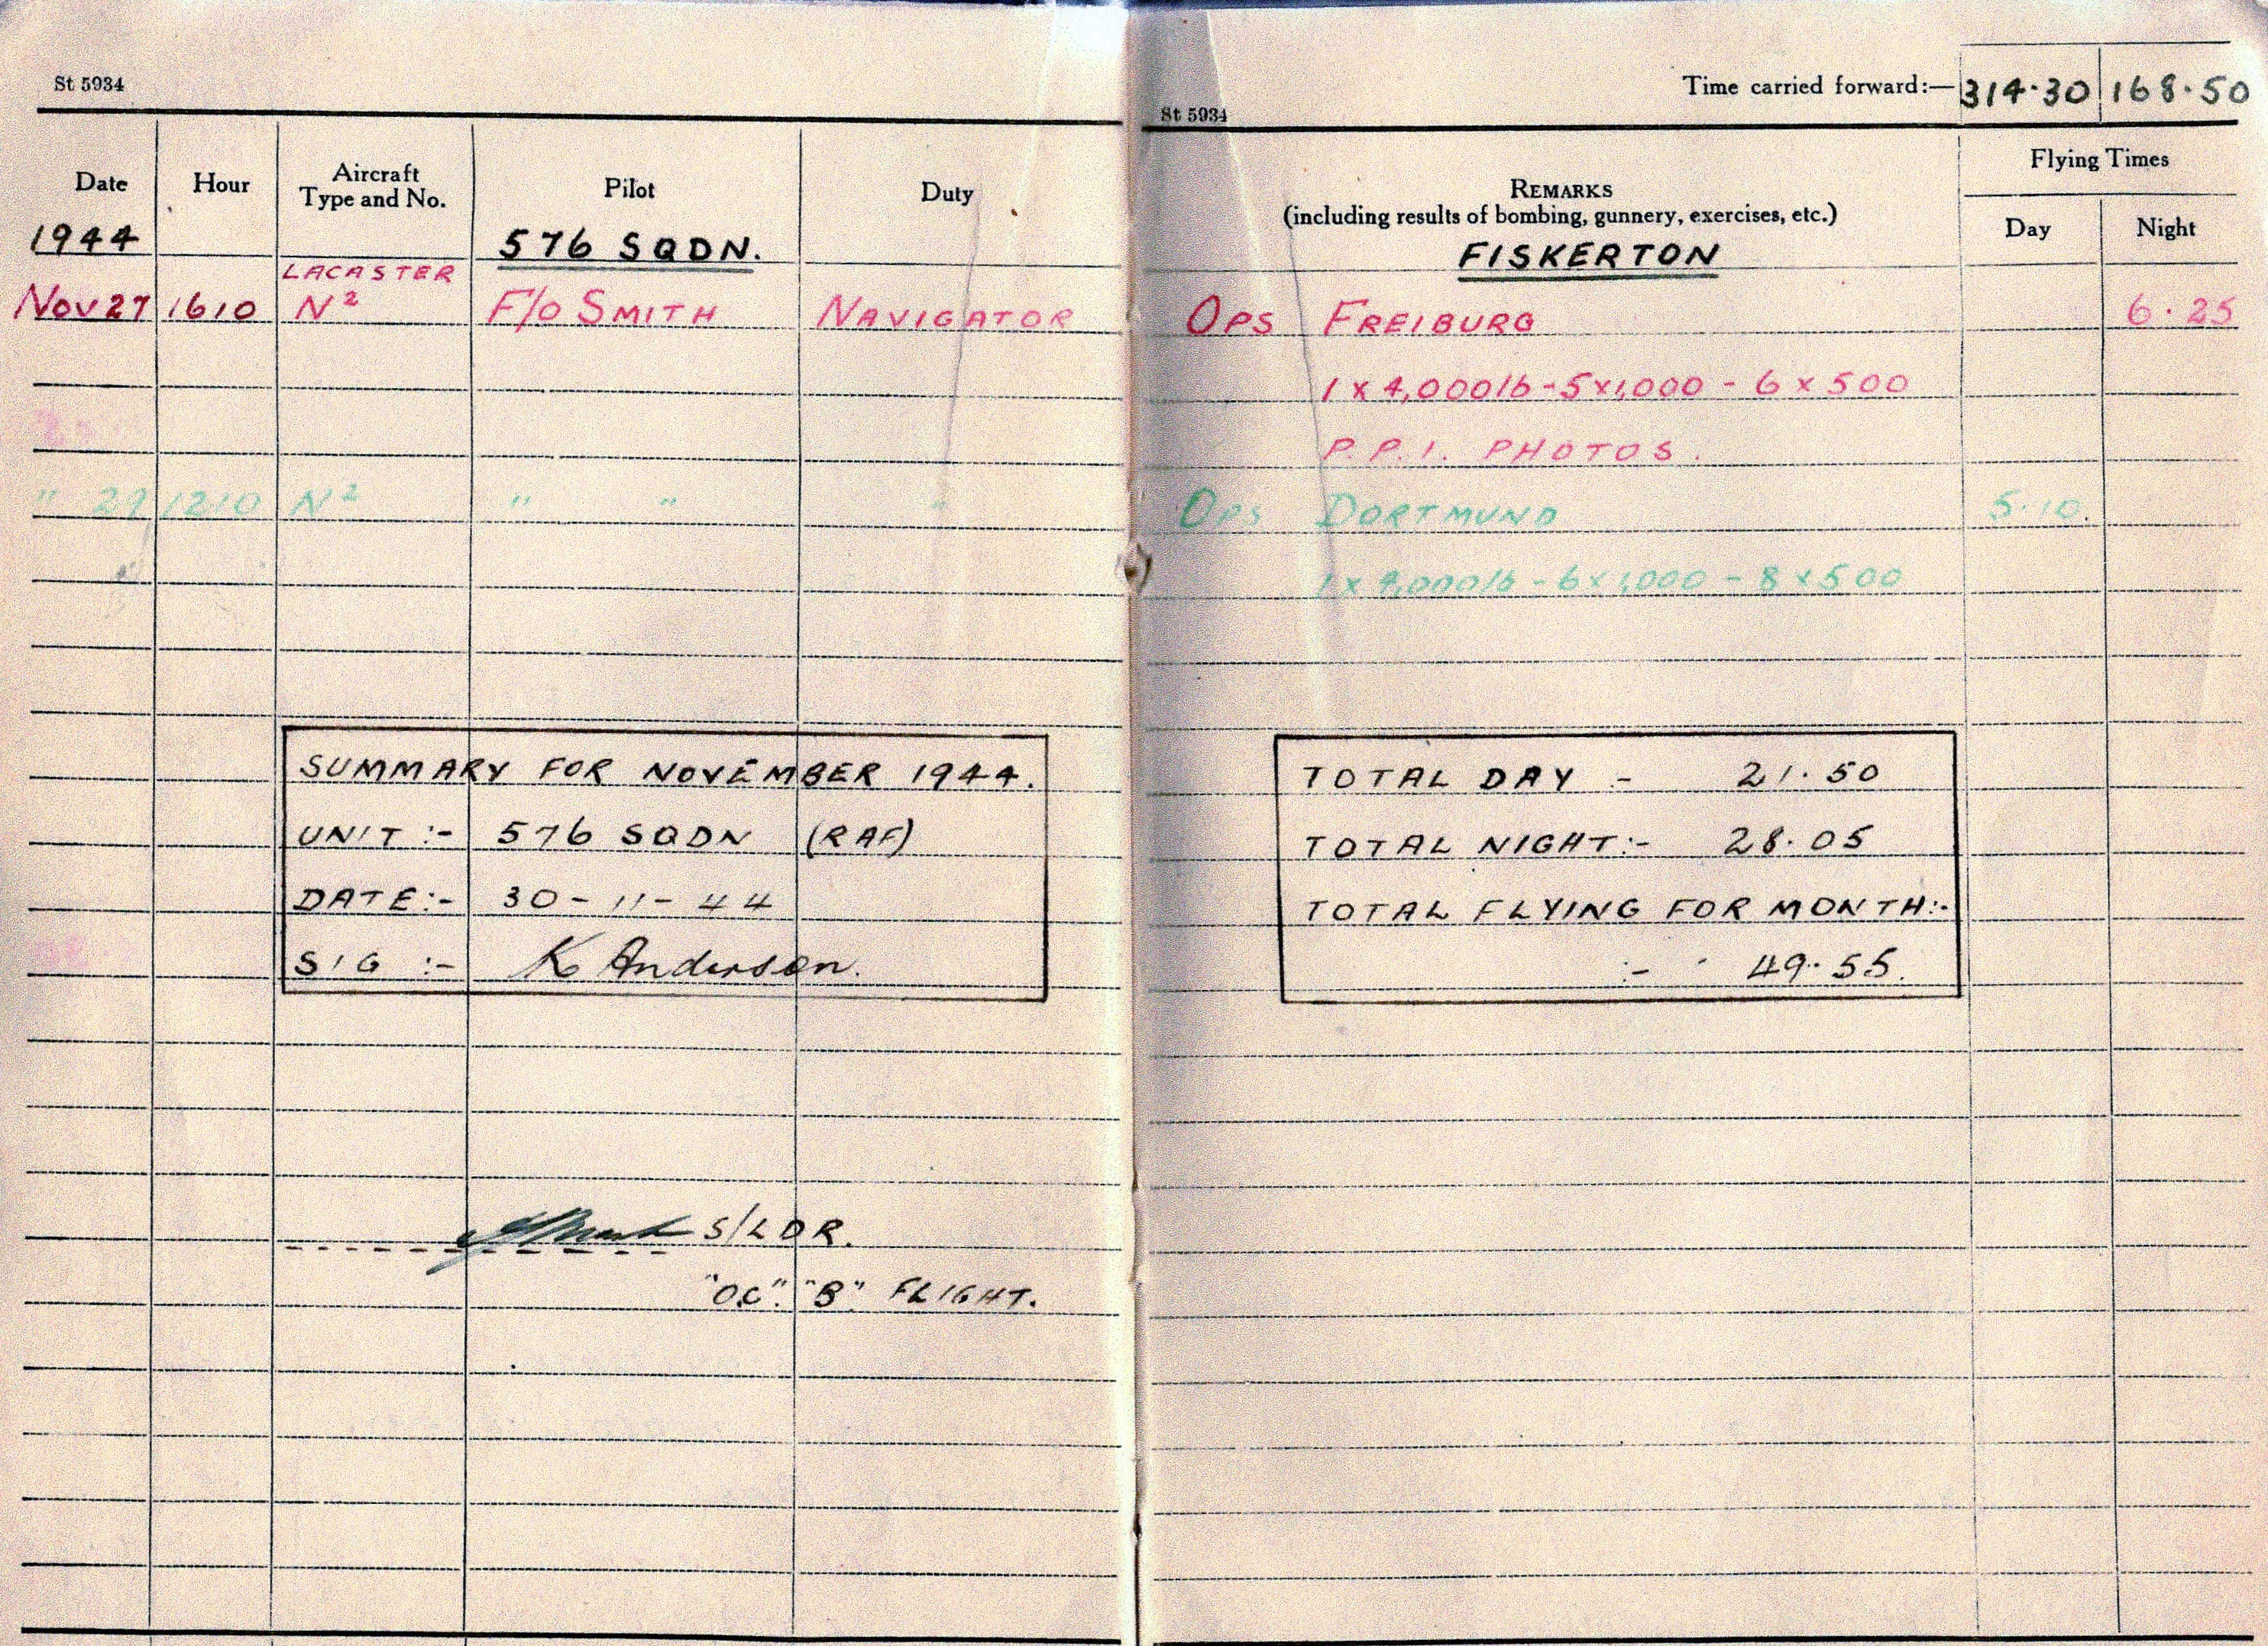 St 5934
Date Hour Aircraft Type and No. Pilot Duty
1944 576 SQDN.
LACASTER
Nov 27 1610 N² F/O SMITH NAVIGATOR
" 29 1210 N² " " "
SUMMARY FOR NOVEMBER 1944.
UNIT :- 576 SQDN (RAF)
DATE:- 30-11-44
SIG :- K Anderson.
S/LDR.
"O.C". "B". FLIGHT.
Time carried forward:— 314.30 168.50
St 5934
REMARKS
(including results of bombing, gunnery, exercises, etc.)
Flying Times
Day Night
FISKERTON
OPS FREIBURG 6.25
1 x 4,000lb - 5x1,000 - 6 x 500
P.P.I. PHOTOS.
OPS DORTMUND 5.10.
1 x 4,000lb - 6x1,000 - 8 x 500
TOTAL DAY :- 21.50
TOTAL NIGHT:- 28.05
TOTAL FLYING FOR MONTH:-
:- 49.55.